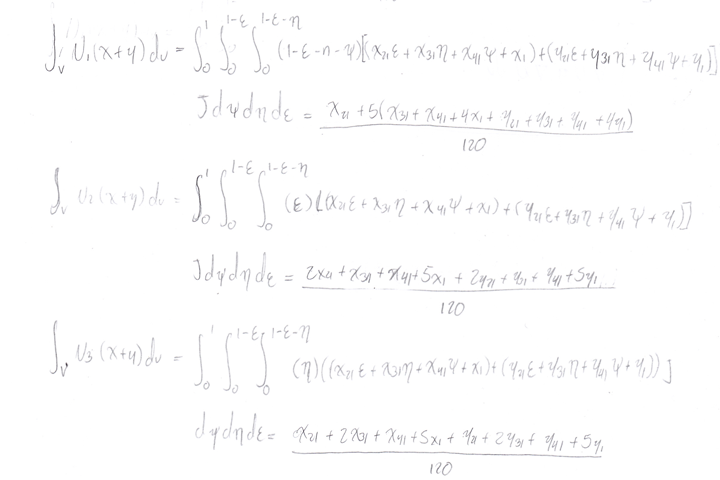 ∫_V U₁(x+y)dv = ∫₀¹ ∫₀^{1-ε} ∫₀^{1-ε-η} (1-ε-η-ψ)[(x₂₁ε+x₃₁η+x₄₁ψ+x₁)+(y₂₁ε+y₃₁η+y₄₁ψ+y₁)]
J dψ dη dε = x₂₁ + 5(x₃₁+x₄₁+4x₁+y₂₁+y₃₁+y₄₁+4y₁)
120
∫_V U₂(x+y)dv = ∫₀¹ ∫₀^{1-ε} ∫₀^{1-ε-η} (ε)[(x₂₁ε+x₃₁η+x₄₁ψ+x₁)+(y₂₁ε+y₃₁η+y₄₁ψ+y₁)]
J dψ dη dε = 2x₂₁+x₃₁+x₄₁+5x₁+2y₂₁+y₃₁+y₄₁+5y₁
120
∫_V U₃(x+y)dv = ∫₀¹ ∫₀^{1-ε} ∫₀^{1-ε-η} (η)((x₂₁ε+x₃₁η+x₄₁ψ+x₁)+(y₂₁ε+y₃₁η+y₄₁ψ+y₁))J
dψ dη dε = x₂₁+2x₃₁+x₄₁+5x₁+y₂₁+2y₃₁+y₄₁+5y₁
120